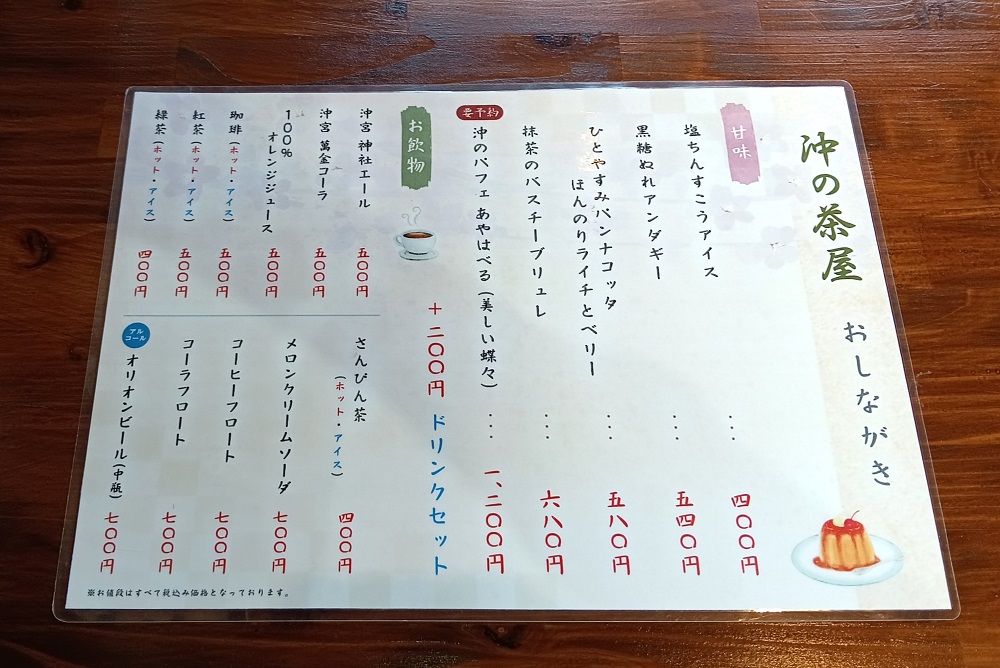 沖の茶屋
おしながき
甘味
塩ちんすこうアイス ・・・ 四〇〇円
黒糖ぬれアンダギー ・・・ 五四〇円
ひとやすみパンナコッタ
ほんのりライチとベリー ・・・ 五八〇円
抹茶のバスチーブリュレ ・・・ 六八〇円
要予約
沖のパフェ あやはべる(美しい蝶々) ・・・ 一、二〇〇円
お飲物
+二〇〇円 ドリンクセット
沖宮 神社エール 五〇〇円
沖宮 萬金コーラ 五〇〇円
100%
オレンジジュース 五〇〇円
珈琲(ホット・アイス) 五〇〇円
紅茶(ホット・アイス) 五〇〇円
緑茶(ホット・アイス) 四〇〇円
さんぴん茶
(ホット・アイス) 四〇〇円
メロンクリームソーダ 七〇〇円
コーヒーフロート 七〇〇円
コーラフロート 七〇〇円
アルコール
オリオンビール(中瓶) 七〇〇円
※お値段はすべて税込み価格となっております。